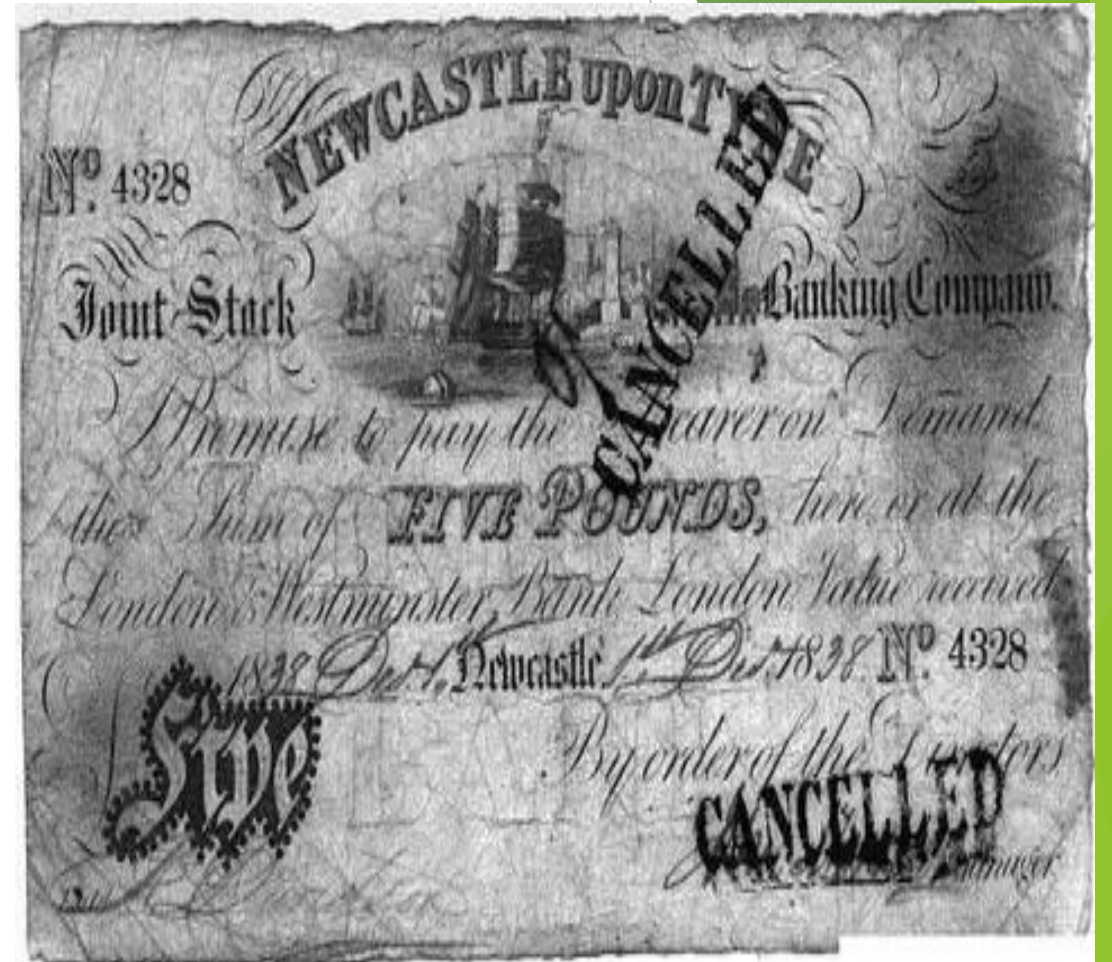 NEWCASTLE upon TYNE
Nº 4328
Joint Stock Banking Company.
CANCELLED
I Promise to pay the Bearer on Demand
the Sum of FIVE POUNDS, here or at the
London & Westminster Bank London Value received
1838 Newcastle 1st 1838 Nº 4328
Five
By order of the Directors
CANCELLED
Manager